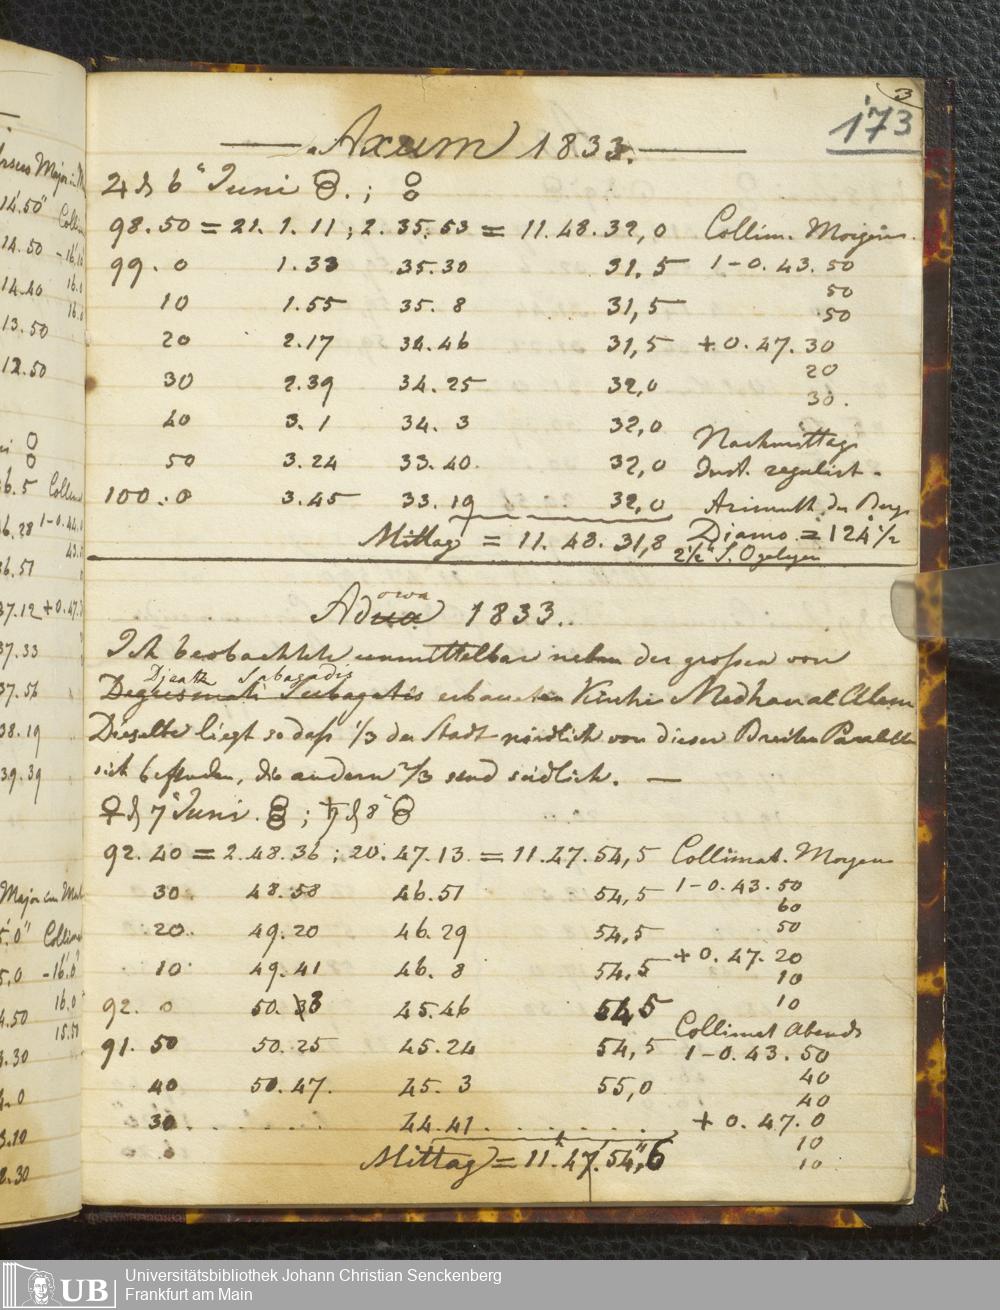 3
173
Axum 1833.
♃ d 6" Juni
98.50 = 21. 1. 11 ; 2. 35. 53 = 11. 48. 32,0 Collim. Morgens.
99. 0 1. 33 35. 30 31,5 1-0. 43. 50
50
10 1. 55 35. 8 31,5 50
20 2. 17 34. 46 31,5 + 0. 47. 30
20
30 2. 39 34. 25 32,0 30.
40 3. 1 34. 3 32,0 Nachmittags
50 3. 24 33. 40. 32,0 Inst. regulirt.
100. 0 3. 45 33. 19 32,0 Azimuth des Bergs
Mittag = 11. 48. 31,8 Diamo = 124 1/2
2 1/2" S.
Adua owa 1833.
Ich beobachtete unmittelbar neben der grossen von
Djeatz Sabagadis
Subagatis erbauten Kirche Medhan at Alem
Dieselbe liegt so dass 1/3 der Stadt nördlich von dieser Breiten Parallele
sich befinden, die andern 2/3 sind südlich. —
♀ d 7" Juni. ; ♄ d 8"
92. 40 = 2. 48. 36 ; 20. 47. 13. = 11. 47. 54,5 Collimat. Morgens
30. 48. 58 46. 51 54,5 1-0. 43. 50
60
20. 49. 20 46. 29 54,5 50
10 49. 41 46. 8 54,5 + 0. 47. 20
10
92. 0 50. 3 45. 46 54,5 10
Collimat Abends
91. 50 50. 25 45. 24 54,5 1-0. 43. 50
40 50. 47. 45. 3 55,0 40
40
30 . . . . . . 44. 41 . . . . . . + 0. 47. 0
10
Mittag = 11. 47. 54",6 10
14.50"
14.50
14.40
13.50
12.50
36.51
37.12 + 0.47.
37.33
37.56
38.19
39.39
Universitätsbibliothek Johann Christian Senckenberg
Frankfurt am Main
UB